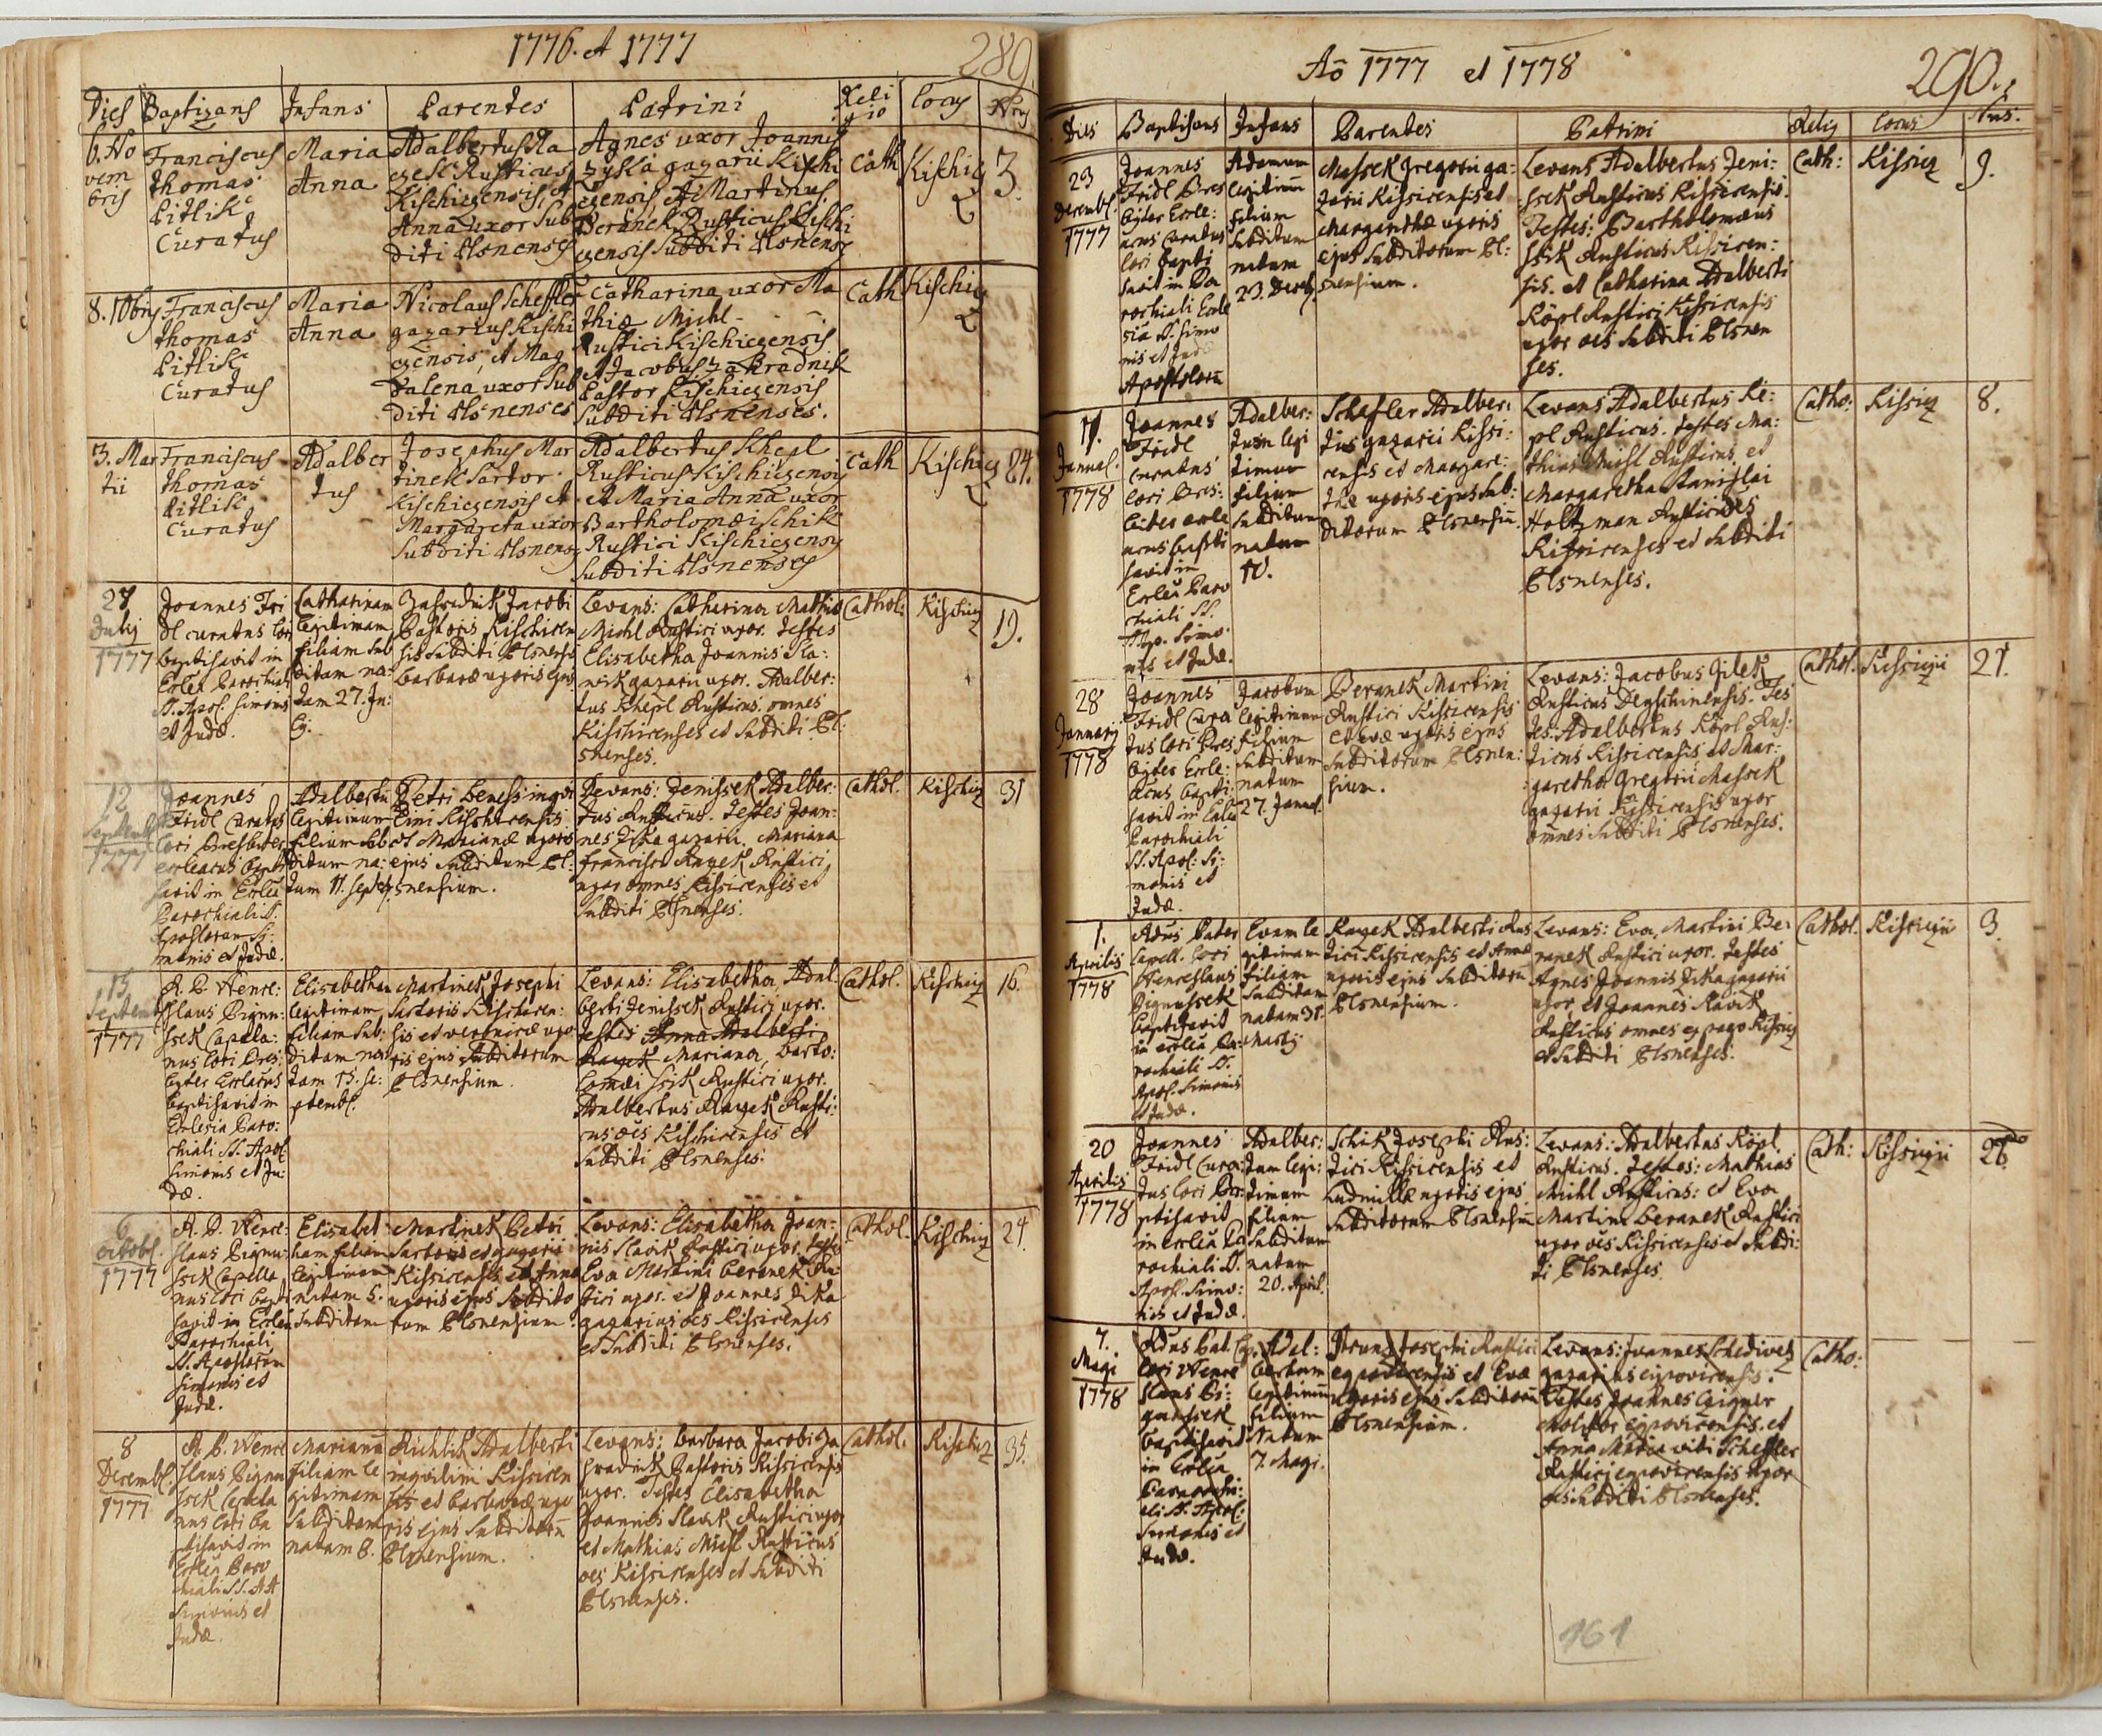 1776. et 1777
289
Dies Baptizans Infans Parentes Patrini Religio Locus Nrus
6. No
vem
bris
Franciscus
Thomas
Pitlik
Curatus
Maria
Anna
Adalbertus Ra
gek Rusticus
Kischicensis, et
Anna uxor Sub
diti Elsnenses
Agnes uxor Joannis
Zyka gazarii Kischi
censis, et Martinus
Beranek Rusticus Kischi
censis Subditi Elsnenses
Cath
Kischicz
3.
8. 10bris
Franciscus
Thomas
Pitlik
Curatus
Maria
Anna
Nicolaus Scheffler
gazarius Kischi
censis, et Mag
dalena uxor Sub
diti Elsnenses
Catharina uxor Ma
thiae Michl
Rustici Kischicensis
et Jacobus Zahradnik
Pastor Kischicensis
Subditi Elsnenses.
Cath
Kischicz
3. Mar
tii
Franciscus
Thomas
Pitlik
Curatus
Adalber
tus
Josephus Mar
tinek Sartor
Kischicensis et
Margareta uxor
Subditi Elsnenses
Adalbertus Khepl
Rusticus Kischicensis
et Maria Anna uxor
Bartholomaei Schik
Rustici Kischicensis
Subditi Elsnenses
Cath
Kischicz
24.
27
July
1777
Joannes Fri
dl curatus loci
baptisavit in
Eccles Parochiali
SS. Apos. Simonis
et Judae.
Catharinam
legitimam
filiam Sub
ditam na:
tam 27. Ju:
lij.
Zahradnik Jacobi
Pastoris Kischicen
sis Subditi Elsnensis
Barbarae uxoris ejus
Levans: Catharina Mathiae
Michl Rustici uxor. Testes
Elisabetha Joannis Sla:
wik gazarii uxor. Adalber:
tus Khepl Rusticus. omnes
Kischicenses et Subditi El:
snenses.
Cathol:
Kischicz
19.
12
Septemb
1777
Joannes
Fridl Curatus
loci Presbiter
ecclearus bapti
savit in Ecclia
Parochiali SS.
Apostoloram Si:
monis et Judae.
Adalbertu
legitimum
filium Sub
ditum na:
tum 11. Septe
Petri Beness inqui
lini Kischicensis
et Marianae uxoris
ejus Subditum El:
snensium.
Levans: Jenissek Adalber:
tus Rusticus. Testes Joan:
nes Zika gazarii, Mariana
Francisci Rayek Rustici
uxor omnes Kissicensis et
Subditi Elsnenses.
Cathol.
Kischicz
31
15
Septemb
1777
A. P. Wence:
slaus Pignu:
ssek Capela:
nus loci Pres:
byter Ecclarus
baptisavit in
Ecclesia Paro:
chiali SS. Apol.
Simonis et Ju:
dae.
Elisabetham
legitimam
filiam Sub:
ditam na:
tam 15. Se:
ptembl.
Martinek Josephi
Sartoris Kischicen:
sis et Veronicae uxo
ris ejus Subditorum
Elsnensium.
Levans: Elisabetha, Adal:
berti Jenissek Rustici uxor.
Testes Anna Adalberti
Rayek Mariana, Barto:
lomaei ssik Rustici uxor.
Adalbertus Rayek Rusti:
cus oes Kischicenses et
Subditi Elsnenses.
Cathol.
Kischicz
16.
6
Octobl.
1777
A. P. Wence:
slaus Pignu:
ssek Capella
nus loci bapti
savit in Ecclia
Parochiali
SS. Apostoloram
Simonis et
Judae.
Elisabet
ham filiam
legitimam
natam 5.
Subditam
Martinek Petri
Sartoris et gazarii
Kissicensis et Annae
uxoris ejus Subdito
rum Elsnensium.
Levans: Elisabetha Joan:
nis Slawik Rustici uxor. Testes
Eva Martini Beranek Ru
stici uxor. et Joannes Zika
gazarius oes Kissicenses
et Subditi Elsnenses.
Cathol.
Kischicz
24.
8
Decembl.
1777
A. P. Wence
slaus Pignu
ssek Capela
nus loci ba
ptisavit in
Ecclia Paro
chiali SS. AA
Simonis et
Judae.
Mariana
filiam le
gitimam
Subditam
natam 8.
Richlik Adalberti
inquilini Kissicen
sis et Barbarae uxo
ris ejus Subditoru
Elsnensium.
Levans: Barbara Jacobi Za
hradnik Pastoris Kissicensis
uxor. Testes Elisabetha
Joannis Slavik Rustici uxor
et Mathias Michl Rusticus
oes Kissicenses et Subditi
Elsnensis.
Cathol.
Kischicz
35.
Ao 1777 et 1778
290.
Dies Baptisans Infans Parentes Patrini Relig Locus Nrus.
23
Decembl.
1777
Joannes
Fridl Pres
byter Eccle:
arus Curatus
loci bapti
savit in Pa
rochiali Eccle
sia SS. Simo
nis et Judae
Apostoloru
Adamum
legitimu
filium
Subditum
natum
23. Decb
Massek Gregorii ga:
zarii Kissicensis et
Margarethae uxoris
ejus Subditorum El:
snensium.
Levans Adalbertus Jeni:
ssek Rusticus Kissicensis.
Testes: Bartholomaeus
ssik Rusticus Kissicen:
sis. et Catharina Adalberti
Köpl Rustici Kissicensis
uxor oes Subditi Elsnen
ses.
Cath:
Kissicz
9.
11.
Januar.
1778
Joannes
Fridl
curatus
loci Pres:
biter eccle
arus bapti
savit in
Ecclia Paro
chiali SS.
App. Simo:
nis et Judae.
Adalber:
tum legi
timum
filium
Subditum
natum
10.
Schefler Adalber:
tus gazarii Kissi:
censis et Margare:
thae uxoris ejus Sub:
ditorum Elsnensiu.
Levans Adalbertus Ke:
pl Rusticus. Testes Ma:
thias Michl Rusticus et
Margaretha Stanislai
Holtzman Rustici oes
Kissicenses et Subditi
Elsnenses.
Catho:
Kissicz
8.
28
Januarij
1778
Joannes
Fridl Cura
tus loci Pres
byter Eccle:
arus bapti:
savit in Eclia
Parochiali
SS. Apol: Si:
monis et
Judae.
Jacobum
legitimum
filium
Subditum
natum
27. Januar.
Beranek Martini
Rustici Kissicensis
et Evae uxoris ejus
Subditorum Elsnen:
sium.
Levans: Jacobus Jilek
Rusticus Deyschinensis. Tes
tes: Adalbertus Köpl Rus:
ticus Kissicensis, et Mar:
garetha Gregorii Massek
gazarii Kissicensis uxor
omnes Subditi Elsnenses.
Cathol.
Kissiczii
21.
1.
Aprilis
1778
Adus Pater
Capell. loci
Wenceslaus
Pignussek
baptisavit
in ecclia Pa:
rochiali SS.
Apol. Simonis
et Judae.
Evam le
gitimam
filiam
Subditam
natam 31.
Martij.
Rayek Adalberti Rus
tici Kissicensis et Annae
uxoris ejus Subditoru
Elsnensium.
Levans: Eva, Martini Be:
ranek Rustici uxor. Testes
Agnes Joannis Zika gazarii
uxor, et Joannes Slavik
Rusticus omnes ex pago Kissicz
et Subditi Elsnenses.
Cathol.
Kissiczii
3.
20
Aprilis
1778
Joannes
Fridl Cura:
tus loci Ba:
ptisavit
in ecclia Pa
rochiali SS.
Apol. Simo:
nis et Judae.
Adalber:
tum legi:
timum
filium
Subditum
natum
20. April.
Schik Josephi Rus:
tici Kissicensis et
Ludmillae uxoris ejus
Subditorum Elsnensiu
Levans: Adalbertus Köpl
Rusticus. Testes: Mathias
Michl Rusticus: et Eva
Martini Beranek Rustici
uxor oes Kissicenses et Subdi:
ti Elsnenses
Cath:
Kissiczii
26.
7.
Magi
1778
Adus Pat. Cap.
loci Wence
slaus Pi:
gnussek
baptisavit
in Ecclia
Parochi:
ali SS. Apol:
Simonis et
Judae.
Adal:
bertum
legitimu
filium
natum
7. Magi.
Josephi Rustici
et Evae
uxoris ejus Subditoru
Elsnensium.
Levans: Joannes Schediwetz
gazarius
Testes Joannes
Molitor et
Anna Maria Viti Scheffler
Rustici uxor
oes Subditi Elsnenses.
Catho:
161